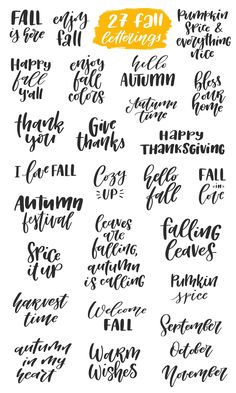 FALL
is here
enjoy
fall
27 fall
letterings
Pumpkin
spice &
everything
nice
Happy
fall
y'all
enjoy
fall
colors
hello
AUTUMN
Autumn
time
Bless
our
home
thank
you
Give
thanks
HAPPY
THANKSGIVING
I love FALL
Cozy
UP
hello
fall
FALL
in
love
Autumn
festival
leaves
are
falling,
autumn
is calling
falling
leaves
Spice
it up
Pumpkin
spice
harvest
time
Welcome
FALL
September
October
November
autumn
in my
heart
Warm
Wishes